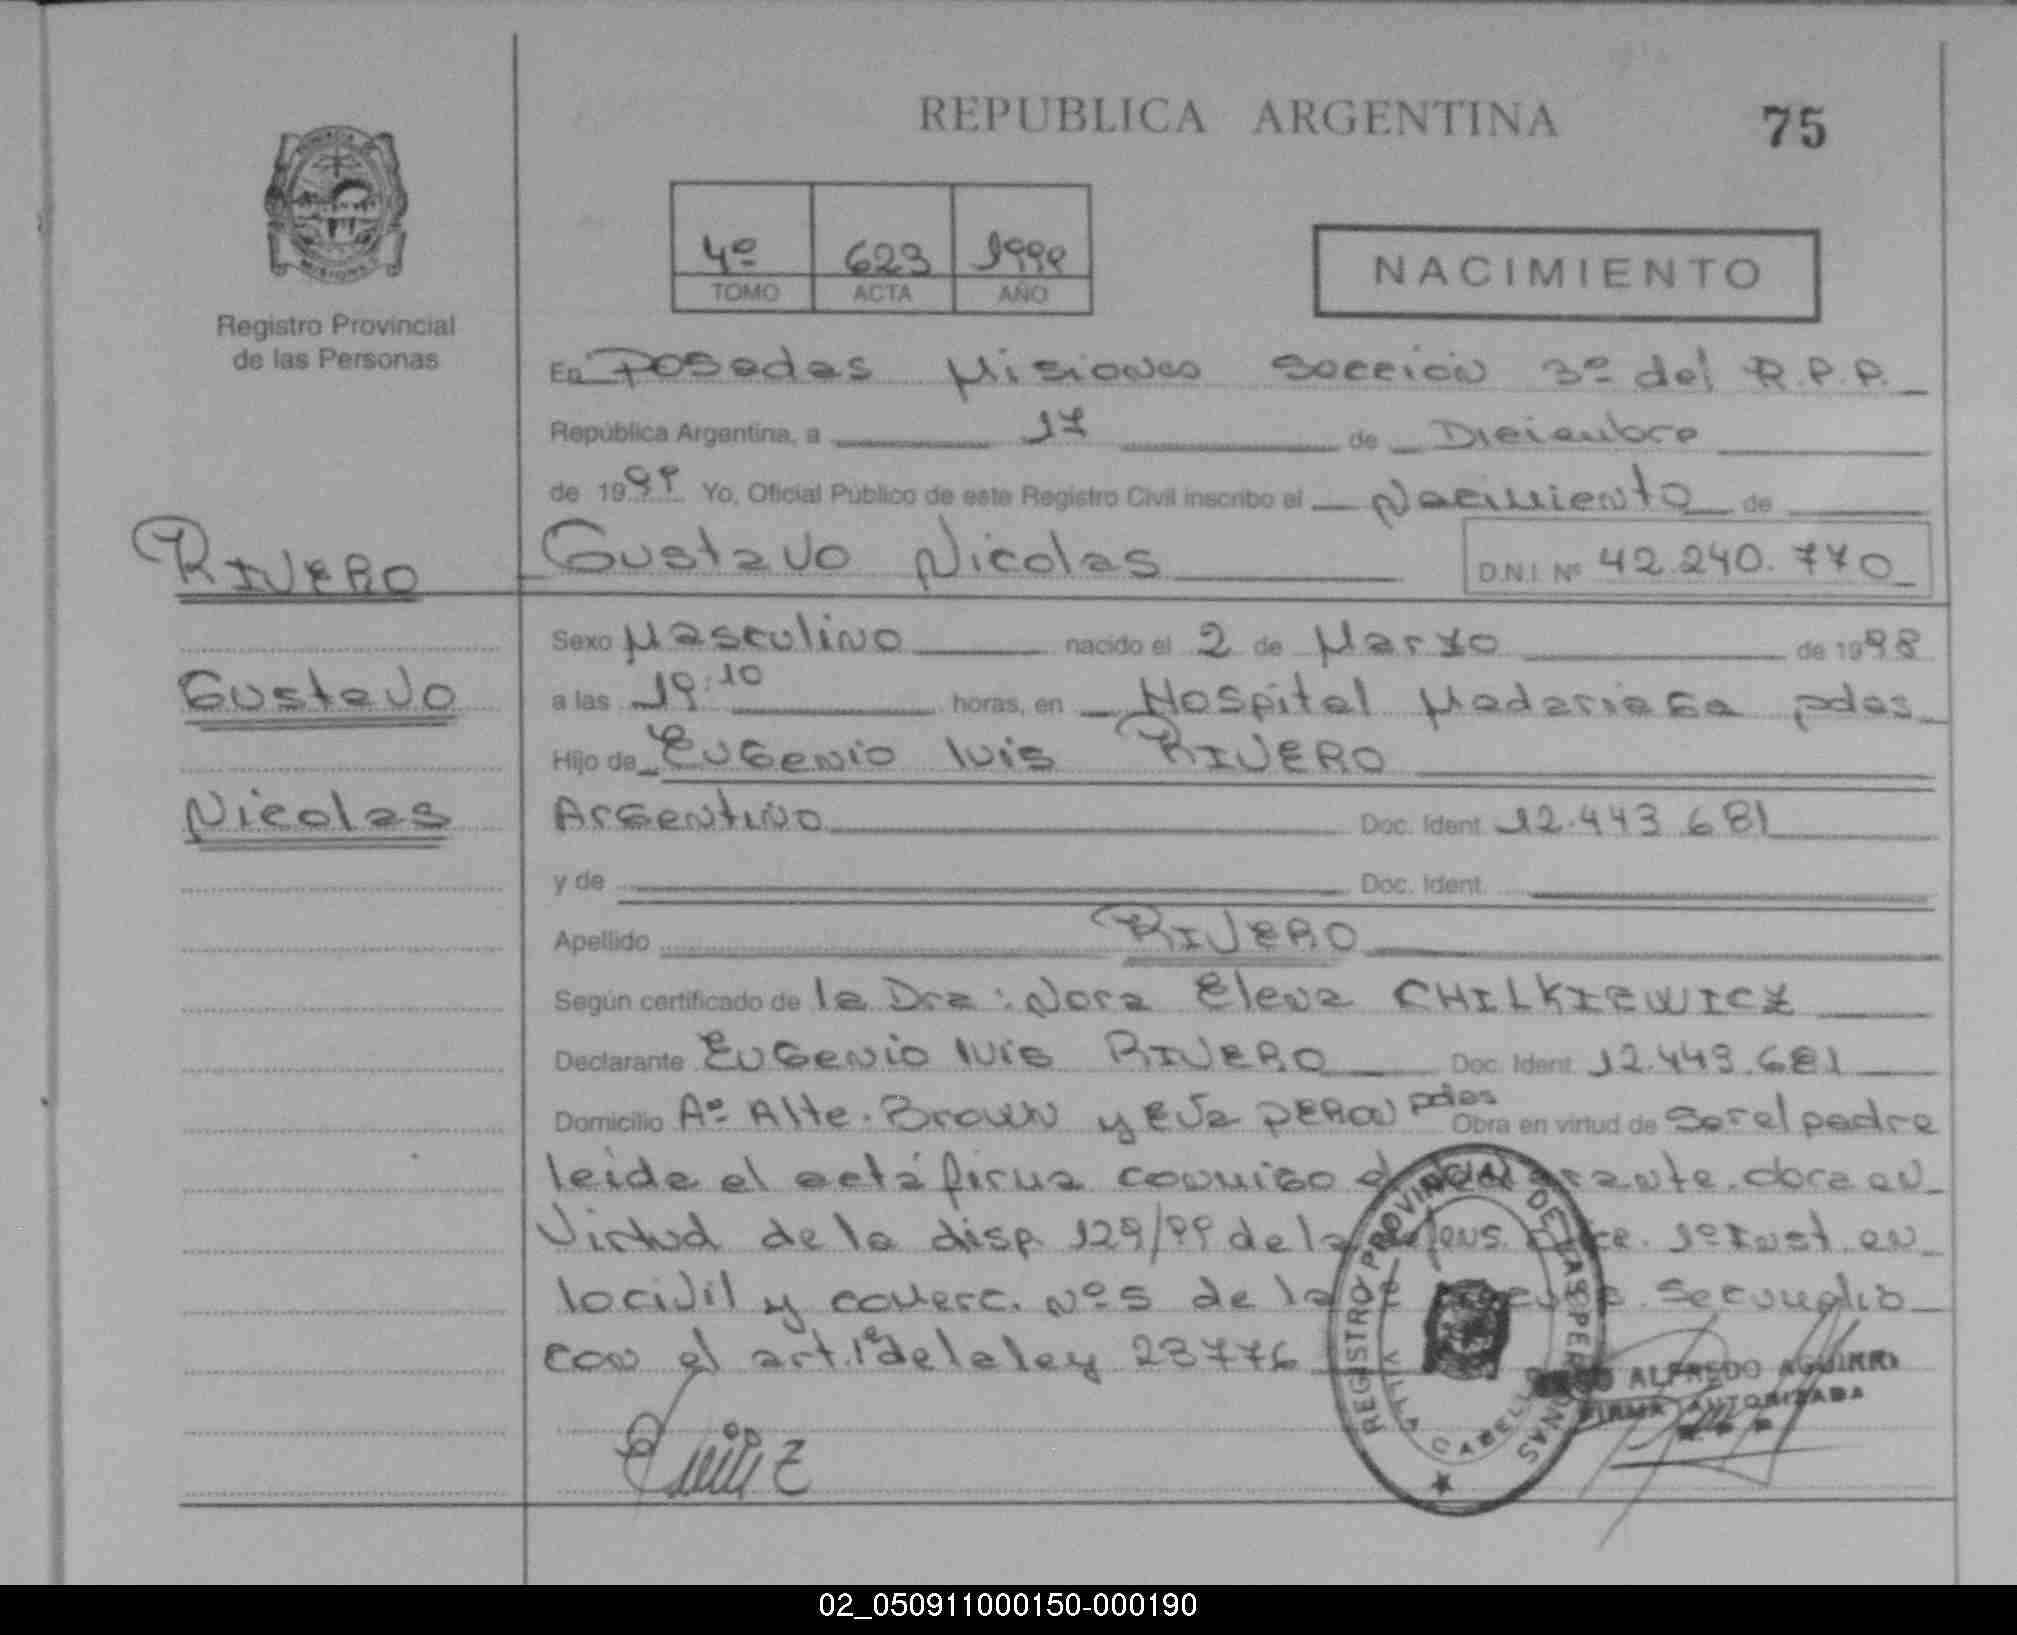 REPUBLICA ARGENTINA
75
4º 623 1999
TOMO ACTA AÑO
NACIMIENTO
Registro Provincial
de las Personas
En Posadas Misiones Sección 3º del R.P.P.
República Argentina, a 17 de Diciembre
de 1999 Yo, Oficial Público de este Registro Civil inscribo el Nacimiento de
RIVERO
Gustavo Nicolas
D.N.I. Nº 42.240.770
Gustavo
Nicolas
Sexo Masculino nacido el 2 de Marzo de 1998
a las 19:10 horas, en Hospital Madariaga pdas
Hijo de Eugenio luis RIVERO
Argentino Doc. Ident. 12.443.681
y de Doc. Ident.
Apellido RIVERO
Según certificado de la Dra: Nora Elena CHILKIEWICZ
Declarante Eugenio luis RIVERO Doc. Ident. 12.443.681
Domicilio Aº Alte. Brown y Eva PERON pdas Obra en virtud de ser el padre
leida el acta firma conmigo obra en
Virtud de la disp. 129/99 de la 1º Inst. en
lo civil y comerc. Nº 5 de la
con el art. 1º de la ley 23776
REGISTRO PROVINCIAL DE LAS PERSONAS
VILLA CABELLO
ALFREDO AGUIRRE
FIRMA AUTORIZADA
02_050911000150-000190